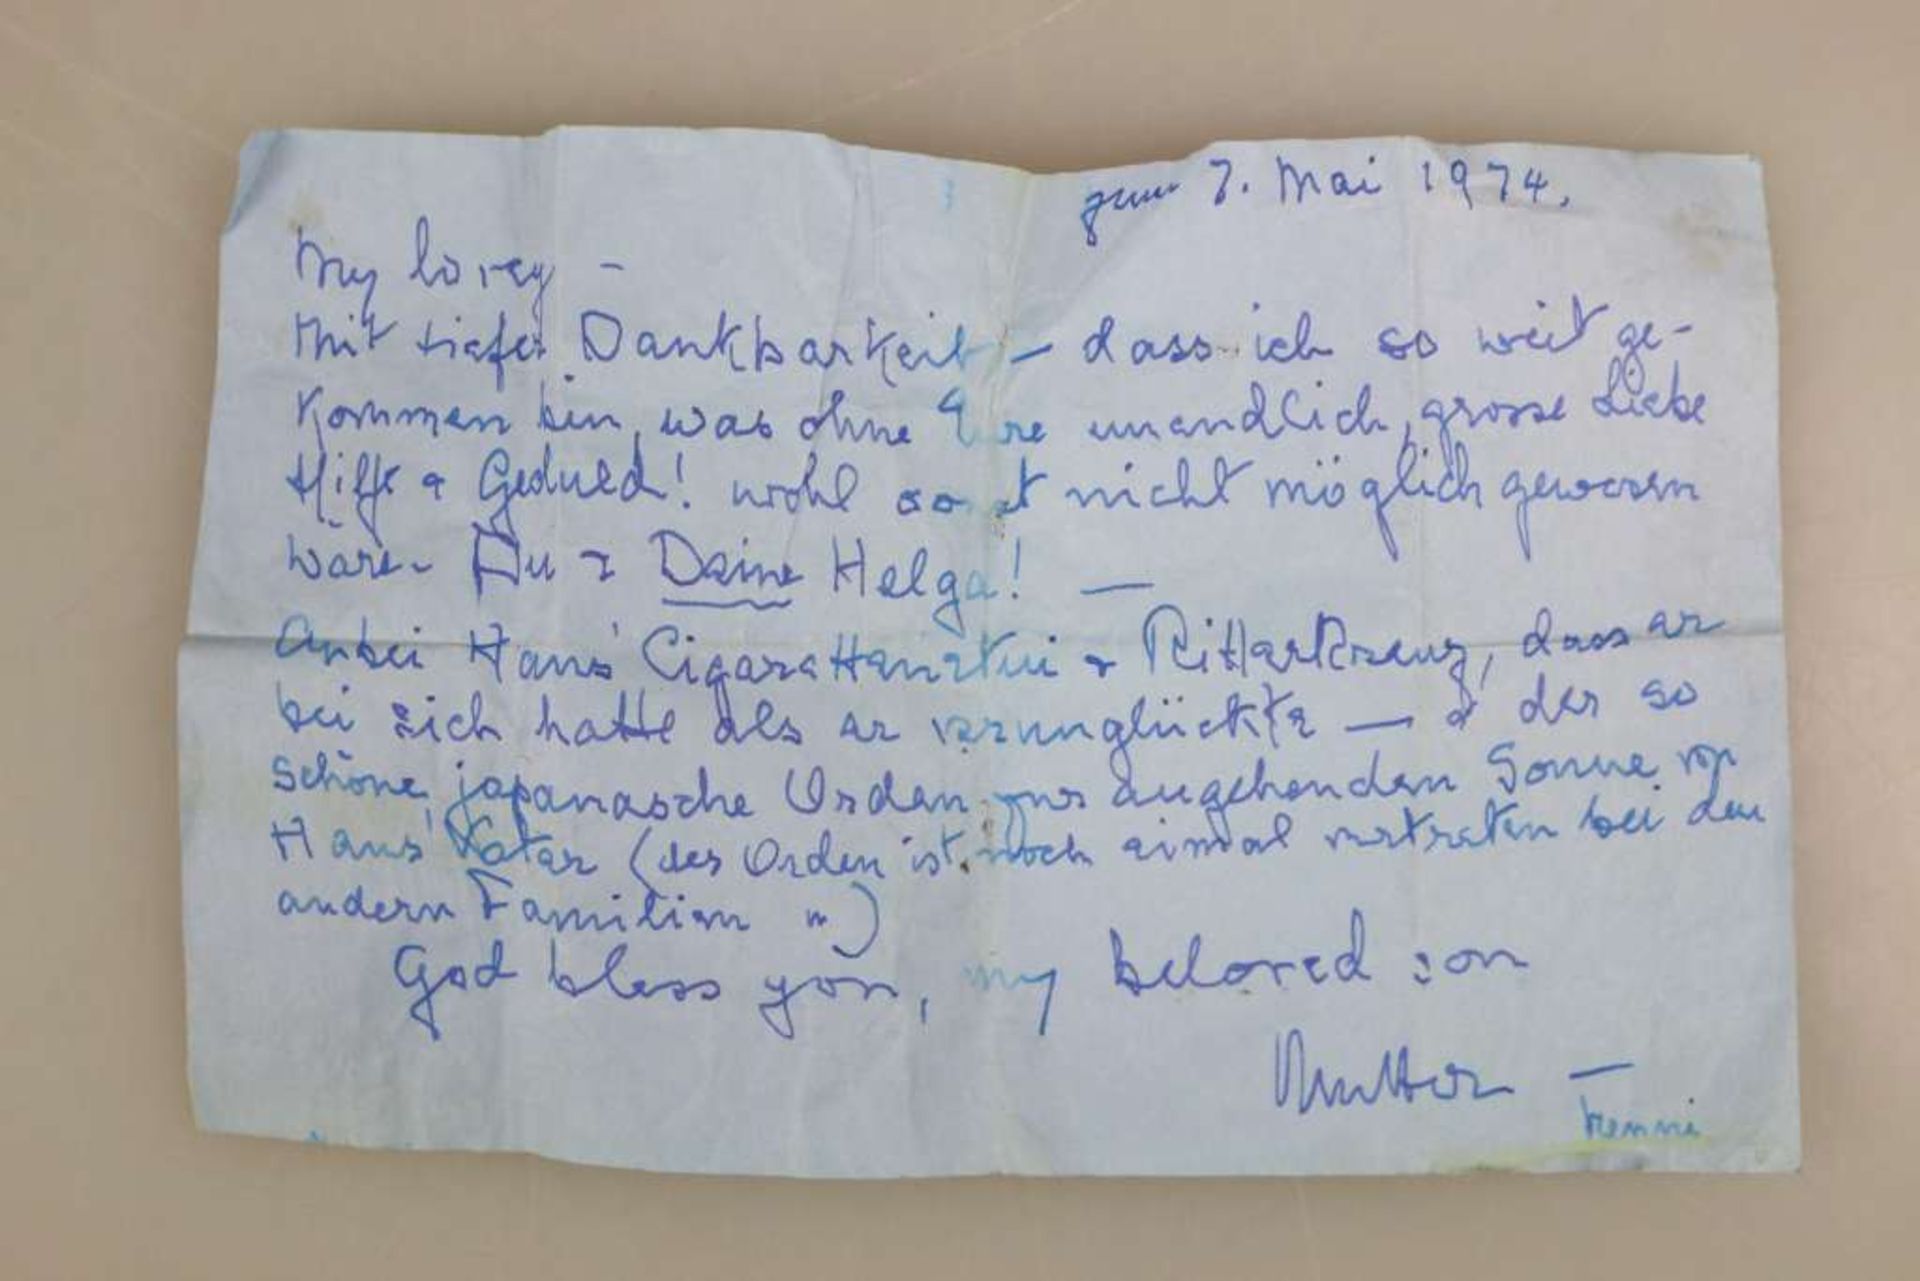 zum 7. Mai 1974.
My lovey –
Mit tiefer Dankbarkeit – dass ich so weit ge-
kommen bin, was ohne Eure unendlich, grosse Liebe
Hilfe & Geduld! wohl sonst nicht möglich gewesen
wäre – Du & Deine Helga! —
Anbei Hans' & Ritterkreuz, dass er
bei sich hatte als er verunglückte — & der so
schöne, japanasche Orden zur augehenden Sonne von
Hans' Vater (der Orden ist noch einmal vertreten bei den
andern Familien ")
God bless you, my beloved son
Mutter —
Henni